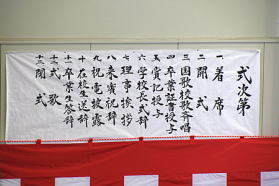 式次第
一 着席
二 開式
三 国歌校歌斉唱
四 卒業証書授与
五 賞記授与
六 学校長式辞
七 理事挨拶
八 来賓祝辞
九 祝電披露
十 在校生送辞
十一 卒業生答辞
十二 式歌
十三 閉式